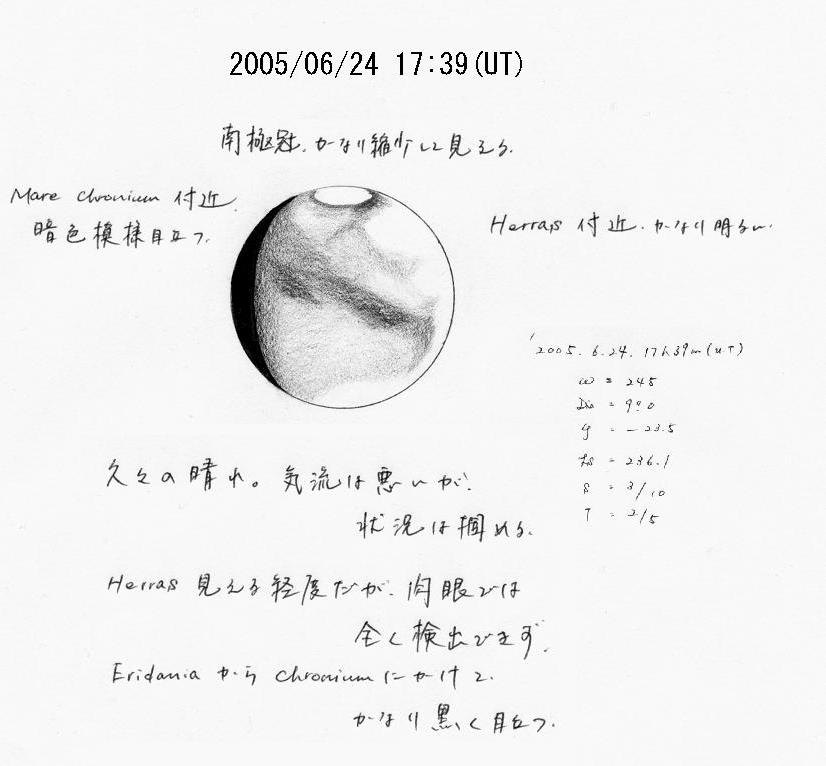 2005/06/24 17:39(UT)
南極冠、かなり縮少して見える。
Mare Chronium 付近、
暗色模様目立つ。
Herras 付近、かなり明るい。
2005. 6. 24. 17h39m (UT)
ω = 245
Dia = 9".0
φ = -23.5
Ls = 236.1
S = 3/10
T = 3/5
久々の晴れ。気流は悪いが、
状況は掴める。
Herras 見える経度だが、肉眼では
全く検出できず。
Eridania から Chronium にかけて、
かなり黒く目立つ。